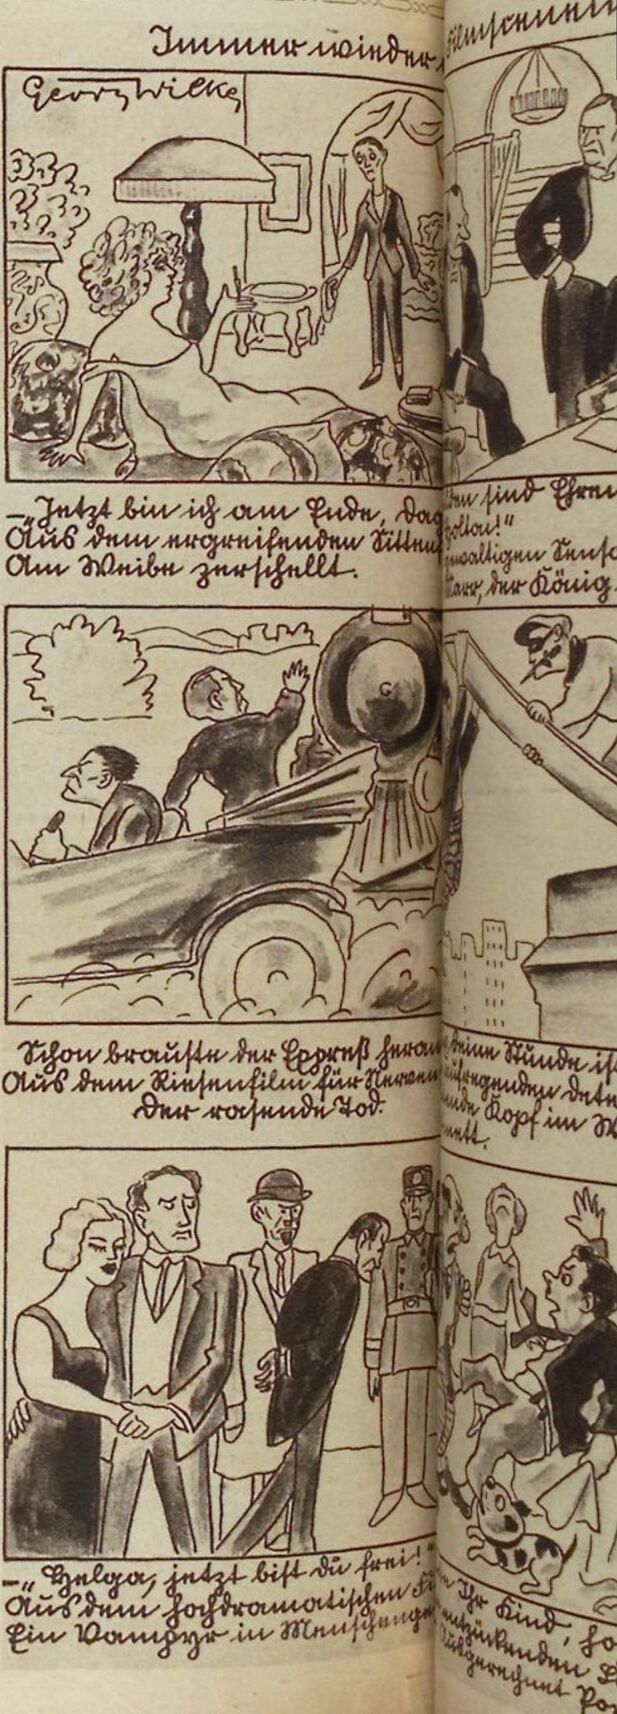 Immer wieder
Filmscenen
Georg Wilke
–„Jetzt bin ich am Ende, Dag
Aus dem ergreifenden Sitten
Am Weibe zerschellt.
den sind Ehren
Soltau!"
gewaltigen Sens
Narr, der König
Schon brauste der Expreß heran
Aus dem Riesenfilm für Nerven
Der rasende Tod.
deine Stunde is
aufregenden Dete
ende Kopf im W
nett.
–„Helga, jetzt bist du frei!"
Aus dem hochdramatischen Fi
Ein Vampyr in Menschenge
Ihr Kind, Ho
entzückenden L
Ausgerechnet Po